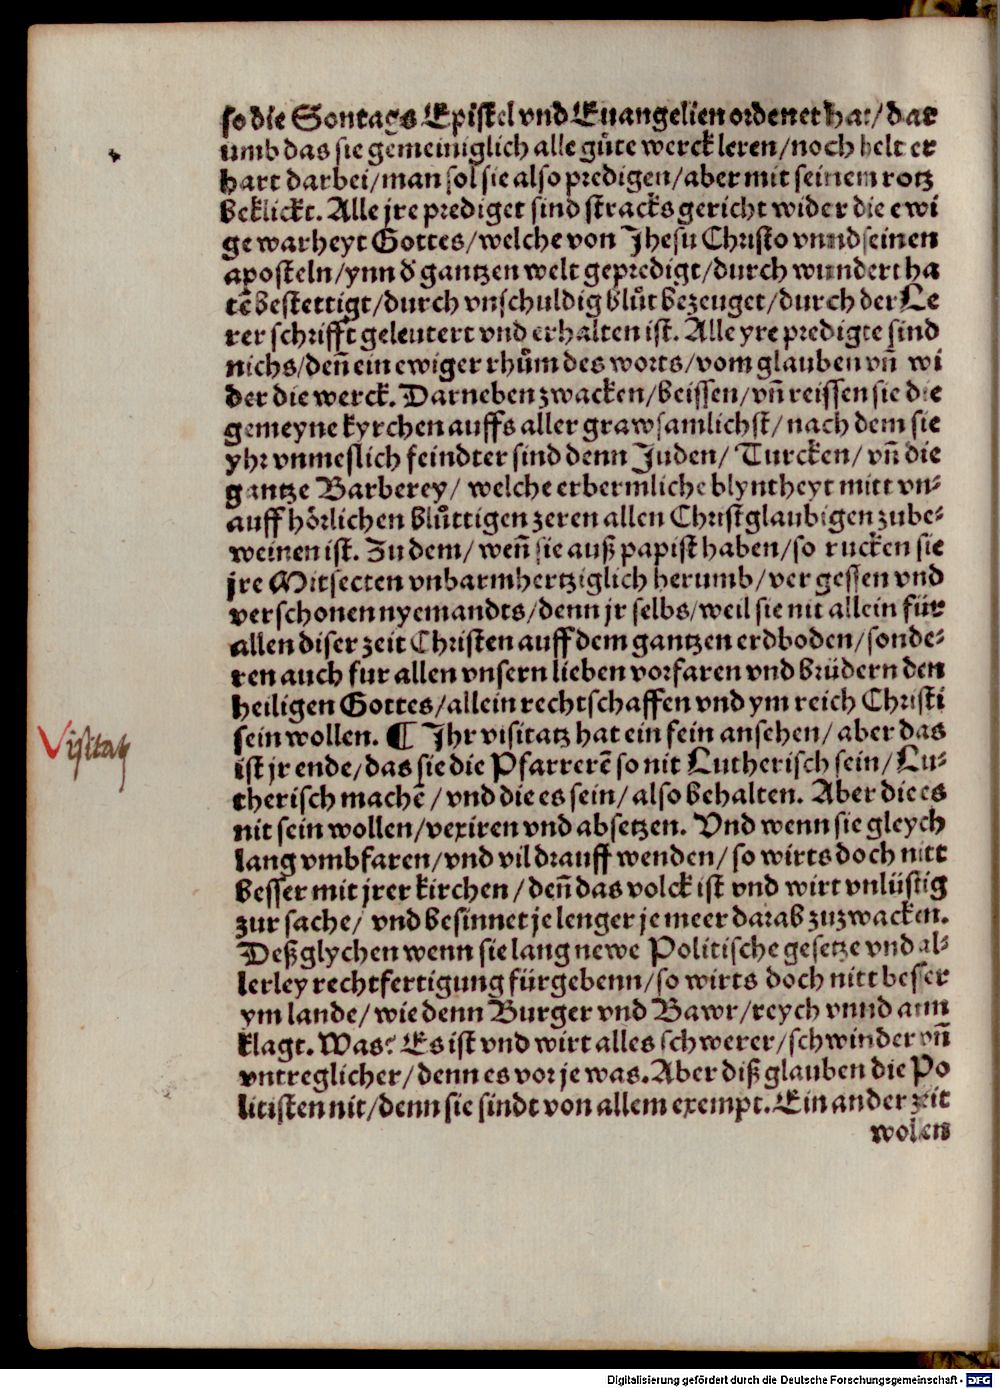 so die Sontags Epistel vnd Euangelien ordenet hat/dar
umb das sie gemeiniglich alle gůte werck leren/noch helt er
hart darbei/man sol sie also predigen/aber mit seinem rotz
beklickt. Alle jre prediget sind stracks gericht wider die ewi
ge warheyt Gottes/welche von Jhesu Christo vnnd seinen
aposteln/ynn d' gantzen welt gepredigt/durch wundert ha
tē bestettigt/durch vnschuldig blůt bezeuget/durch der Le
rer schrifft geleutert vnd erhalten ist. Alle yre predigte sind
nichs/deñ ein ewiger rhům des worts/vom glauben vñ wi
der die werck. Darneben zwacken/beissen/vñ reissen sie die
gemeyne kyrchen auffs aller grawsamlichst/nach dem sie
yhr vnmeslich feindter sind denn Juden/ Turcken/ vñ die
gantze Barberey/ welche erbermliche blyntheyt mitt vn-
auff hörlichen blůttigen zeren allen Christglaubigen zube-
weinen ist. Zu dem/ weñ sie auß papist haben/so rucken sie
jre Mitsecten vnbarmhertziglich herumb/ver gessen vnd
verschonen nyemandts/denn jr selbs/weil sie nit allein für
allen diser zeit Christen auff dem gantzen erdboden/sonde-
ren auch fur allen vnsern lieben vorfaren vnd brüdern den
heiligen Gottes/allein rechtschaffen vnd ym reich Christi
sein wollen. ¶ Jhr visitatz hat ein fein ansehen/aber das
Visitatz
ist jr ende/das sie die Pfarrerē so nit Lutherisch sein/Lu-
therisch machē/vnd die es sein/also behalten. Aber die es
nit sein wollen/vexiren vnd absetzen. Vnd wenn sie gleych
lang vmbfaren/vnd vil drauff wenden/so wirts doch nitt
besser mit jrer kirchen/deñ das volck ist vnd wirt vnlüstig
zur sache/ vnd besinnet je lenger je meer darab zuzwacken.
Deßglychen wenn sie lang newe Politische gesetze vnd al-
lerley rechtfertigung fürgebenn/so wirts doch nitt besser
ym lande/wie denn Burger vnd Bawr/reych vnnd arm
klagt. Was? Es ist vnd wirt alles schwerer/schwinder vñ
vntreglicher/denn es vor je was. Aber diß glauben die Po
litisten nit/denn sie sindt von allem exempt. Ein ander zeit
wolen
Digitalisierung gefördert durch die Deutsche Forschungsgemeinschaft - DFG